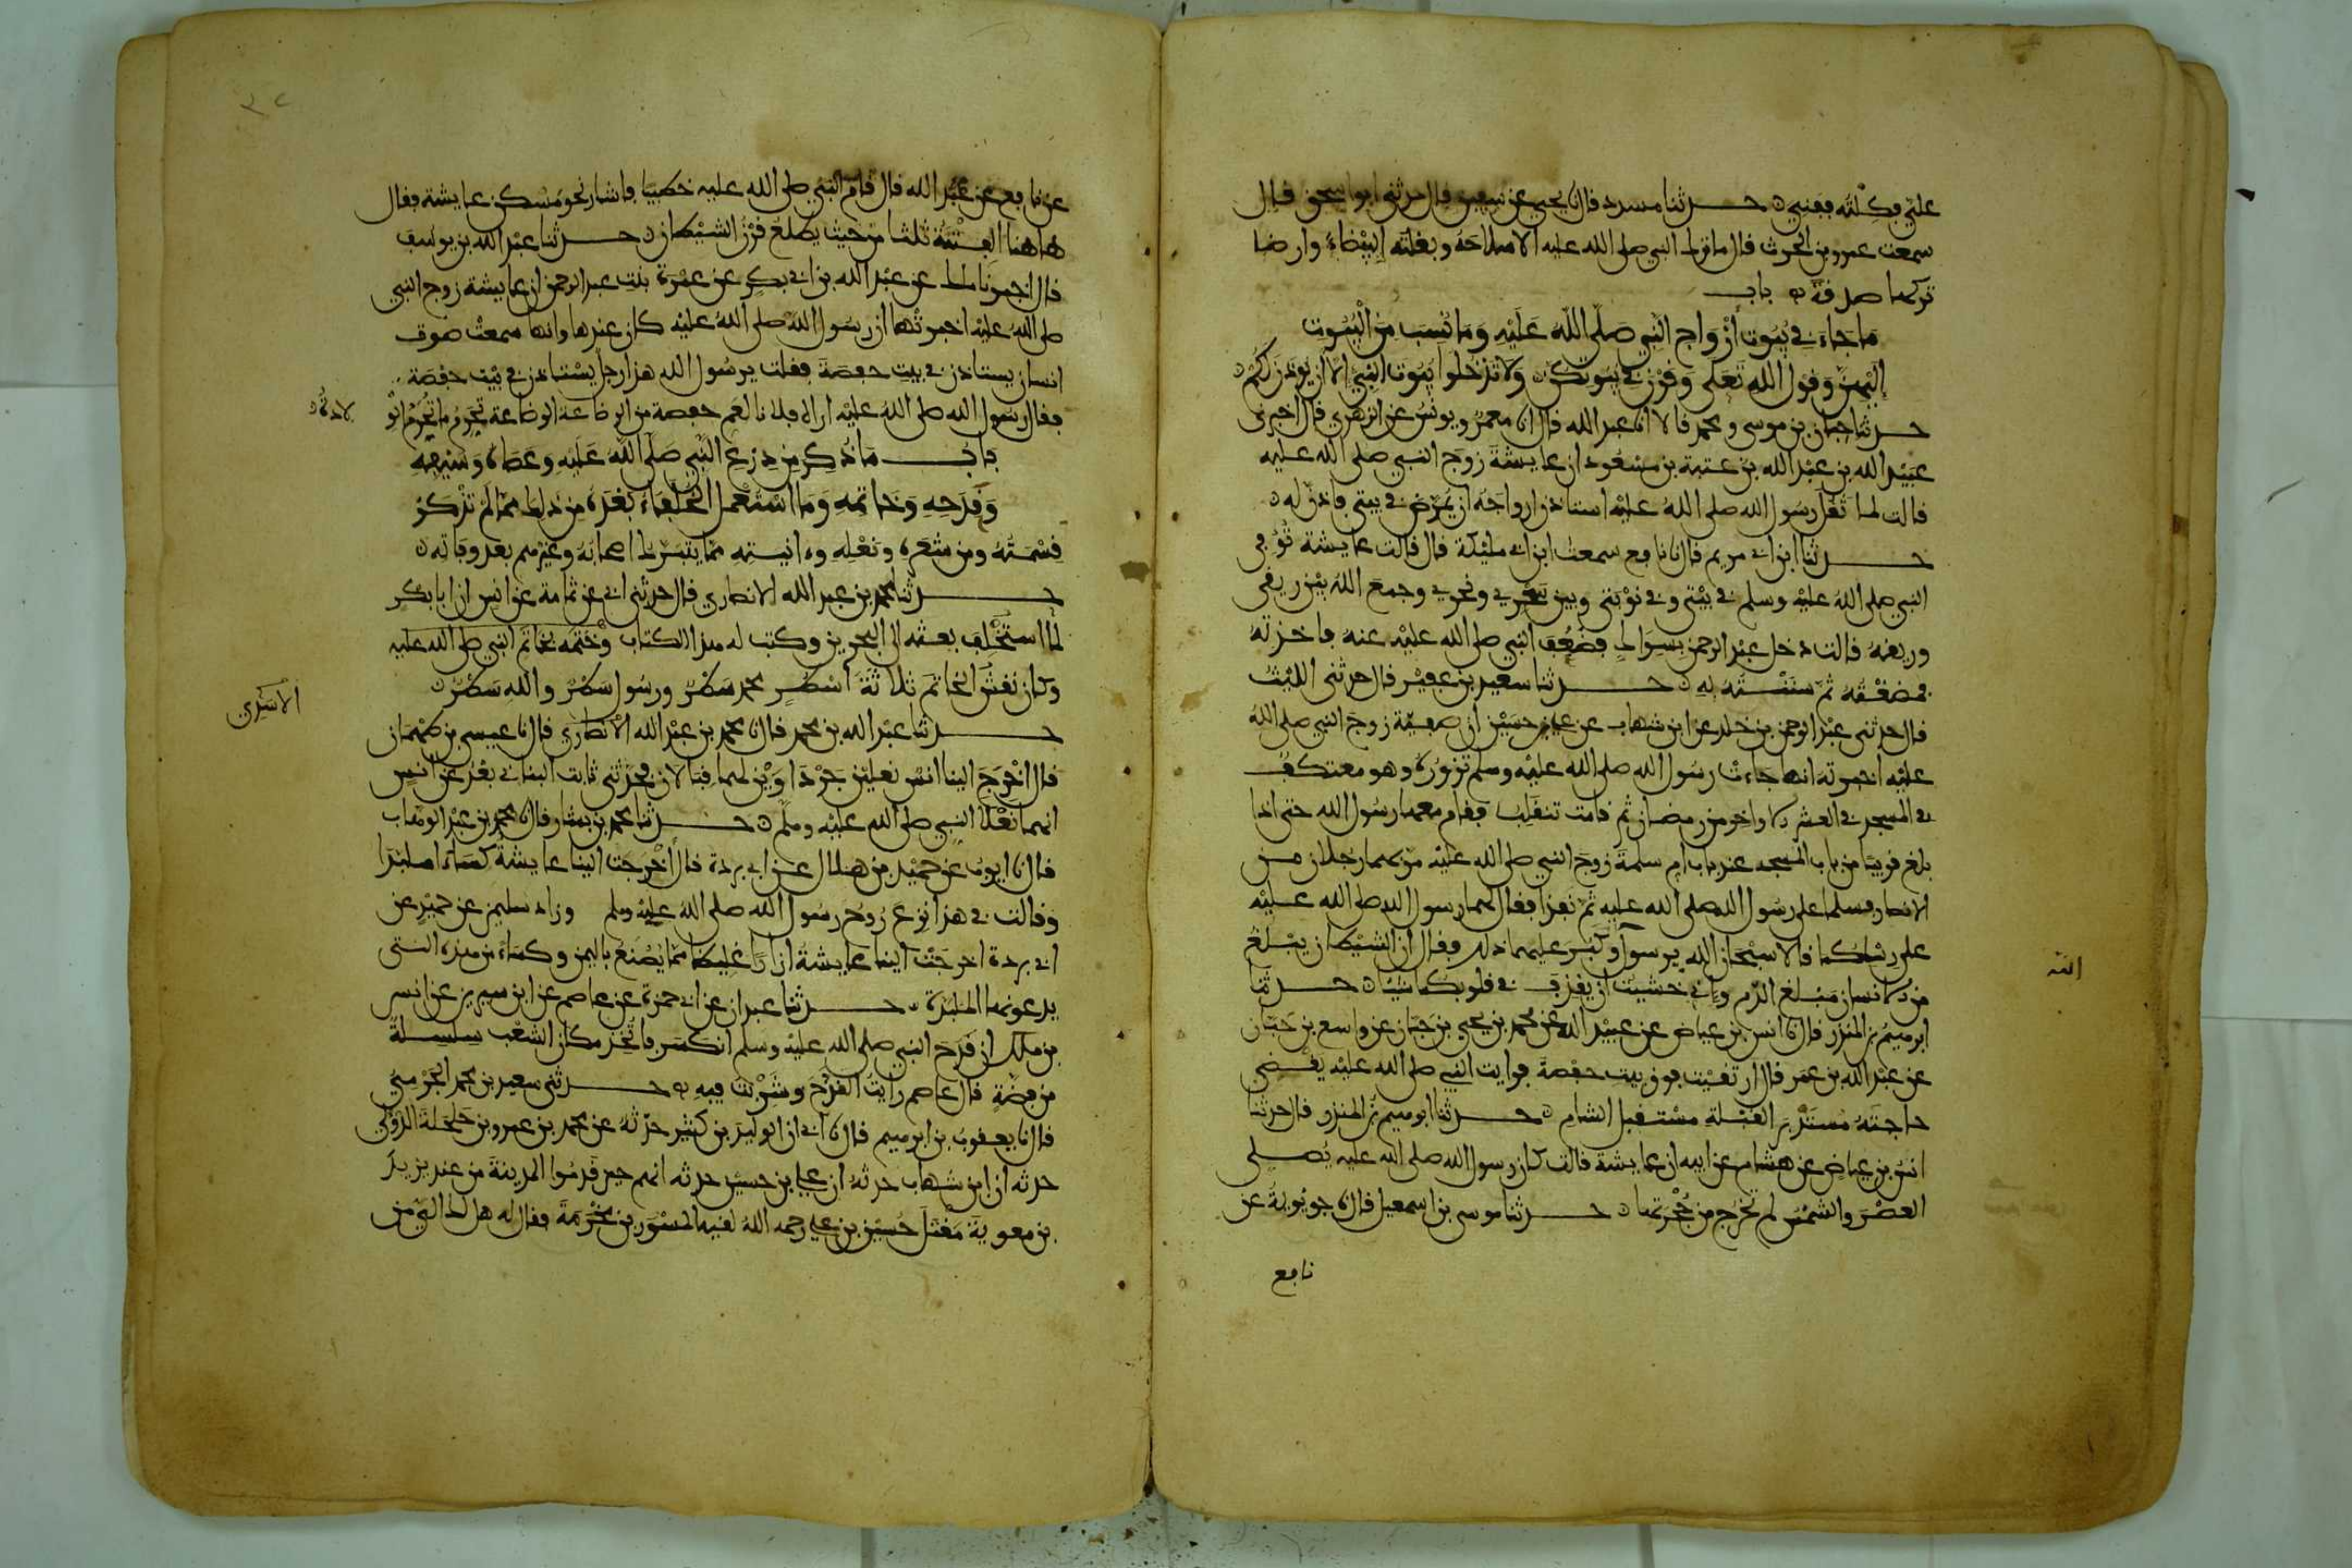 علي فكلته ففني حدثنا مسدد قال نا يحيى عن سفين قال حدثني ابو اسحق قال
سمعت عمرو بن الحرث قال ما ترك النبي صلى الله عليه الا سلاحه وبغلته البيضاء وارضا
تركها صدقة باب
ما جاء في بيوت ازواج النبي صلى الله عليه وما نسب من البيوت
اليهن وقول الله تعلى وقرن في بيوتكن ولا تدخلوا بيوت النبي الا ان يوذن لكم
حدثنا حبان بن موسى ومحمد قالا انا عبد الله قال انا معمر ويونس عن الزهري قال اخبرني
عبيد الله بن عبد الله بن عتبة بن مسعود ان عايشة زوج النبي صلى الله عليه
قالت لما ثقل رسول الله صلى الله عليه استاذن ازواجه ان يمرض في بيتي فاذن له
حدثنا ابن ابي مريم قال نا نافع سمعت ابن ابي مليكة قال قالت عايشة توفي
النبي صلى الله عليه وسلم في بيتي وفي نوبتي وبين سحري ونحري وجمع الله بين ريقي
وريقه قالت دخل عبد الرحمن بسواك فضعف النبي صلى الله عليه عنه فاخذته
فمضغته ثم سننته به حدثنا سعيد بن عفير قال حدثني الليث
قال حدثني عبد الرحمن بن خلد عن ابن شهاب عن علي بن حسين ان صفية زوج النبي صلى الله
عليه اخبرته انها جاءت رسول الله صلى الله عليه وسلم تزوره وهو معتكف
في المسجد في العشر الاواخر من رمضان ثم قامت تنقلب فقام معها رسول الله حتى اذا
بلغ قريبا من باب المسجد عند باب ام سلمة زوج النبي صلى الله عليه مر بهما رجلان من
الانصار فسلما على رسول الله صلى الله عليه ثم نفذا فقال لهما رسول الله صلى الله عليه
على رسلكما قالا سبحان الله يرسول وكبر عليهما ذلك فقال ان الشيطان يبلغ
الله
من الانسان مبلغ الدم واني خشيت ان يقذف في قلوبكما شيئا حدثنا
ابرهيم بن المنذر قال نا انس بن عياض عن عبيد الله عن محمد بن يحيى بن حبان عن واسع بن حبان
عن عبد الله بن عمر قال ارتقيت فوق بيت حفصة فرايت النبي صلى الله عليه يقضي
حاجته مستدبر القبلة مستقبل الشام حدثنا ابرهيم بن المنذر قال حدثنا
انس بن عياض عن هشام عن ابيه ان عايشة قالت كان رسول الله صلى الله عليه يصلي
العصر والشمس لم تخرج من حجرتها حدثنا موسى بن اسمعيل قال نا جويرية عن
نافع
عن نافع عن عبد الله قال قام النبي صلى الله عليه خطيبا فاشار نحو مسكن عايشة فقال
هاهنا الفتنة ثلثا من حيث يطلع قرن الشيطان حدثنا عبد الله بن يوسف
قال اخبرنا ملك عن عبد الله بن ابي بكر عن عمرة بنت عبد الرحمن ان عايشة زوج النبي
صلى الله عليه اخبرتها ان رسول الله صلى الله عليه كان عندها وانها سمعت صوت
انسان يستاذن في بيت حفصة فقلت يرسول الله هذا رجل يستاذن في بيت حفصة
فقال رسول الله صلى الله عليه اراه فلانا لعم حفصة من الرضاعة الرضاعة تحرم ما تحرم الو
لادة
باب ما ذكر من درع النبي صلى الله عليه وعصاه وسيفه
وقدحه وخاتمه وما استعمل الخلفاء بعده من ذلك مما لم تذكر
قسمته ومن شعره ونعله وءانيته مما يتبرك اصحابه وغيرهم بعد وفاته
حدثنا محمد بن عبد الله الانصاري قال حدثني ابي عن ثمامة عن انس ان ابا بكر
لما استخلف بعثه الى البحرين وكتب له هذا الكتاب وختمه بخاتم النبي صلى الله عليه
وكان نقش الخاتم ثلاثة اسطر محمد سطر ورسول سطر والله سطر
حدثنا عبد الله بن محمد قال نا محمد بن عبد الله الانصاري قال نا عيسى بن طهمان
الاسدي
قال اخرج الينا انس نعلين جرداوين لهما قبالان فحدثني ثابت البناني بعد عن انس
انهما نعلا النبي صلى الله عليه وسلم حدثنا محمد بن بشار قال نا محمد بن عبد الوهاب
قال نا ايوب عن حميد بن هلال عن ابي بردة قال اخرجت الينا عايشة كساء ملبدا
وقالت في هذا نزع روح رسول الله صلى الله عليه وسلم وزاد سليمن عن حميد عن
ابي بردة اخرجت الينا عايشة ازارا غليظا مما يصنع باليمن وكساء من هذه التي
يدعونها الملبدة حدثنا عبدان عن ابي حمزة عن عاصم عن ابن سيرين عن انس
بن ملك ان قدح النبي صلى الله عليه وسلم انكسر فاتخذ مكان الشعب سلسلة
من فضة قال عاصم رايت القدح وشربت فيه حدثني سعيد بن محمد الجرمي
قال نا يعقوب بن ابرهيم قال نا ابي ان الوليد بن كثير حدثه عن محمد بن عمرو بن حلحلة الدؤلي
حدثه ان ابن شهاب حدثه ان علي بن حسين حدثه انهم حين قدموا المدينة من عند يزيد
بن معوية مقتل حسين بن علي رحمه الله لقيه المسور بن مخرمة فقال له هل لك الي من